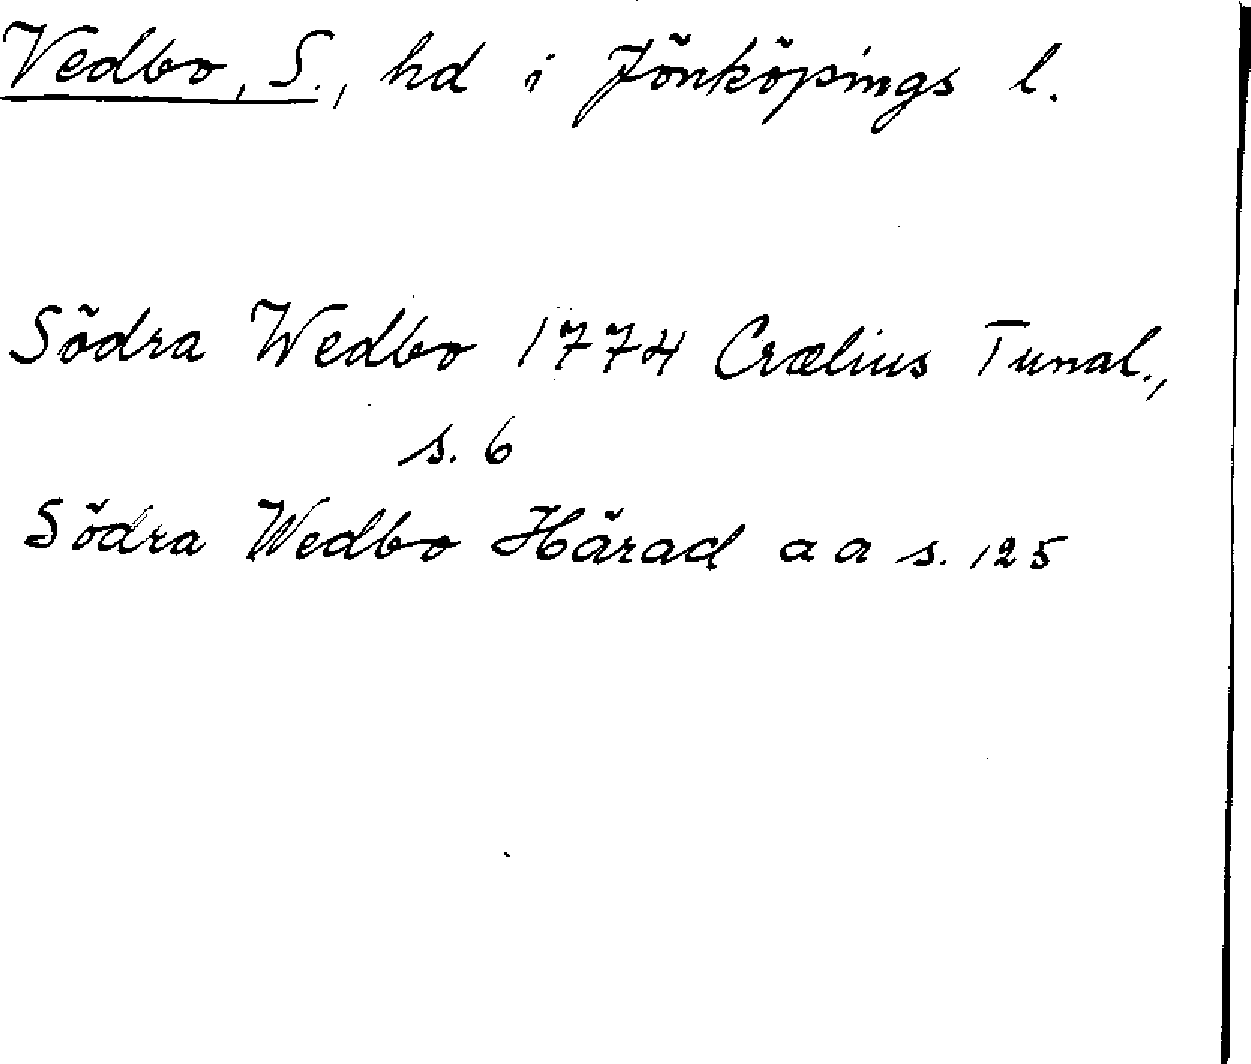 Vedbo, S., hd i Jönköpings l.
Södra Wedbo 1774 Crælius Tunal.,
s. 6
Södra Wedbo Härad a a s. 125